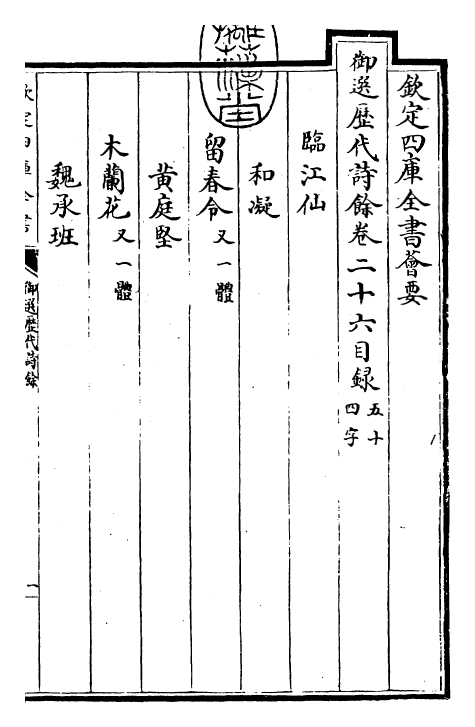 欽定四庫全書薈要
御選歷代詩餘卷二十六目録五十四字
臨江仙
和凝
留春令又一體
黄庭堅
木蘭花又一體
魏承班
御選歷代詩餘
一